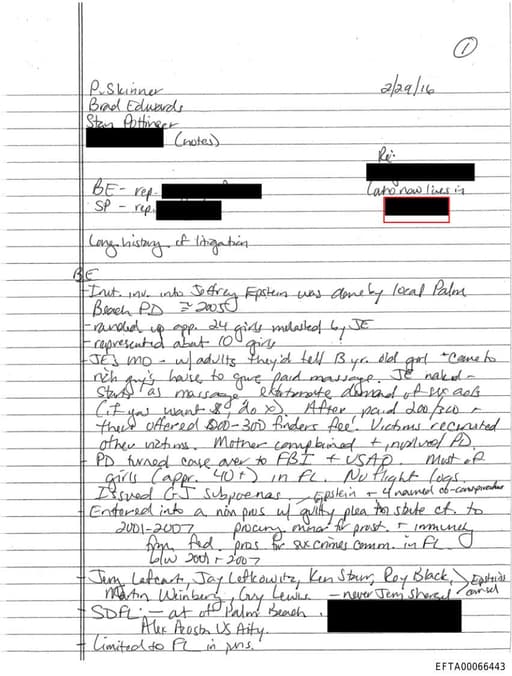 1
P. Skinner 2/29/16
Brad Edwards
Stan Pottinger
(notes)
Re:
BE - rep.
SP - rep.
who now lives in
Long history of litigation
BE
- Init. inv. into Jeffrey Epstein was done by local Palm
Beach PD ≈ 2005
- rounded up app. 24 girls molested by JE
- represented about 10 girls
- JE's MO - w/adults they'd tell 13 yr. old girl "come to
rich guy's house to give paid massage. JE naked -
starts as massage, demand of sex acts
(if you want $ do x). After paid 200/300 -
then offered $200-300 finders fee. Victims recruited
other victims. Mother complained + involved PD.
- PD turned case over to FBI + USAO. Most of
girls (appr. 40+) in FL. No flight logs.
Issued GJ subpoenas. Epstein + 4 named co-conspirators
- Entered into a non pros w/ guilty plea to state ct. to
2001-2007 procuring minor for prost. + immunity
from fed. pros for sex crimes comm. in FL
b/w 2001 + 2007
- Jay Lefkowitz, Ken Starr, Roy Black, Epstein's
Martin Weinberg, Guy Lewis - never counsel
- SDFL - at of Palm Beach.
Alex Acosta US Atty.
- Limited to FL in
EFTA00066443